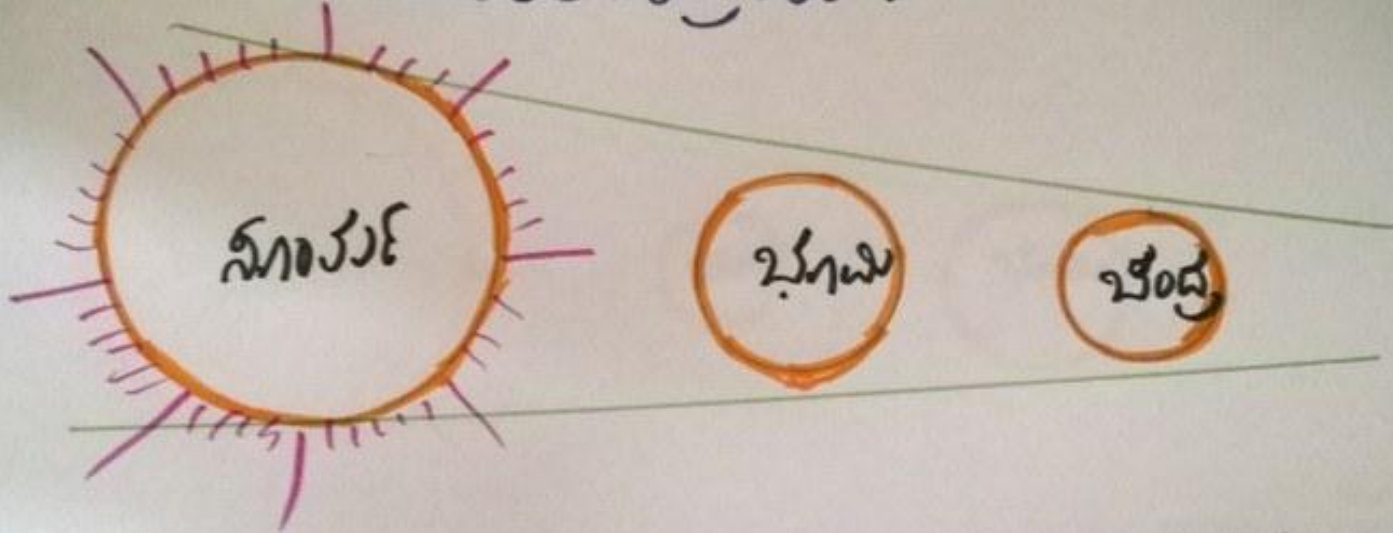 ಸೂರ್ಯ ಭೂಮಿ ಚಂದ್ರ